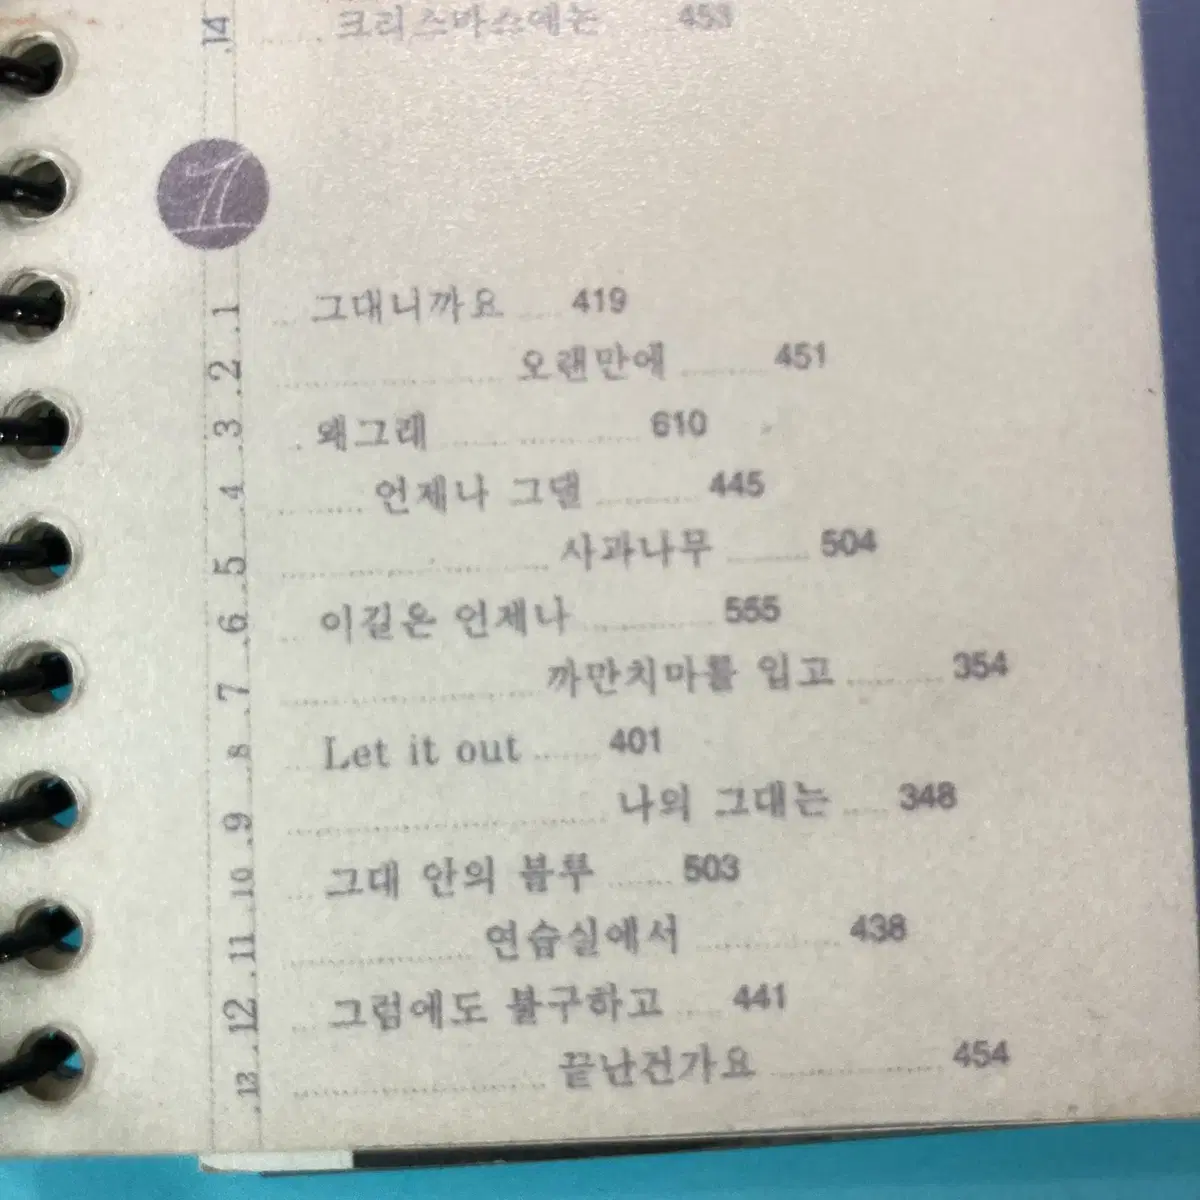 .14 크리스마스에는 453
1
.1 그대니까요 419
.2 오랜만에 451
.3 왜그래 610
.4 언제나 그댈 445
.5 사과나무 504
.6 이길은 언제나 555
.7 까만치마를 입고 354
.8 Let it out 401
.9 나의 그대는 348
.10 그대 안의 블루 503
.11 연습실에서 438
.12 그럼에도 불구하고 441
.13 끝난건가요 454